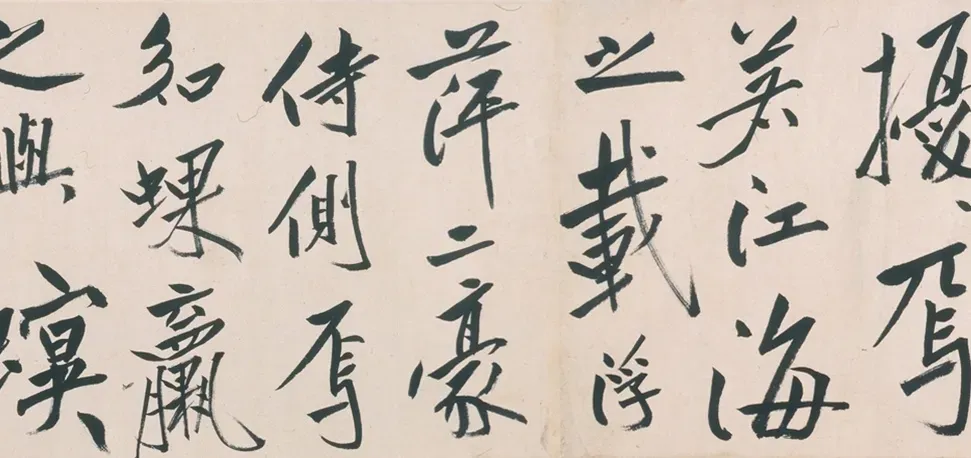 擾々焉
若江海
之載浮
萍二豪
侍側焉
如蜾蠃
之與螟